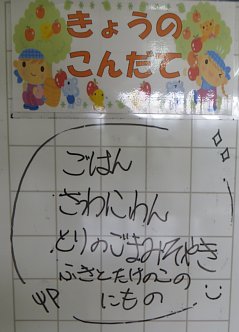 きょうの
こんだて
ごはん
さわにわん
とりのごまみそやき
ふきとたけのこの
にもの